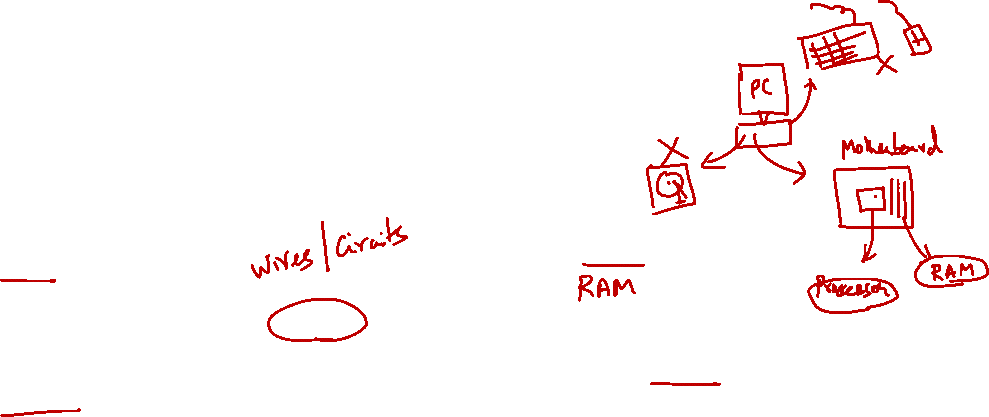 PC
Motherboard
wires/Circuits
RAM
Processor
RAM